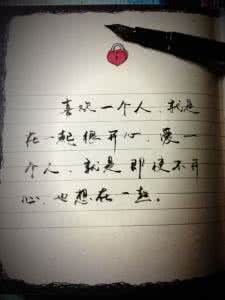 喜欢一个人，就是
在一起很开心，爱一
个人，就是即使不开
心，也想在一起。